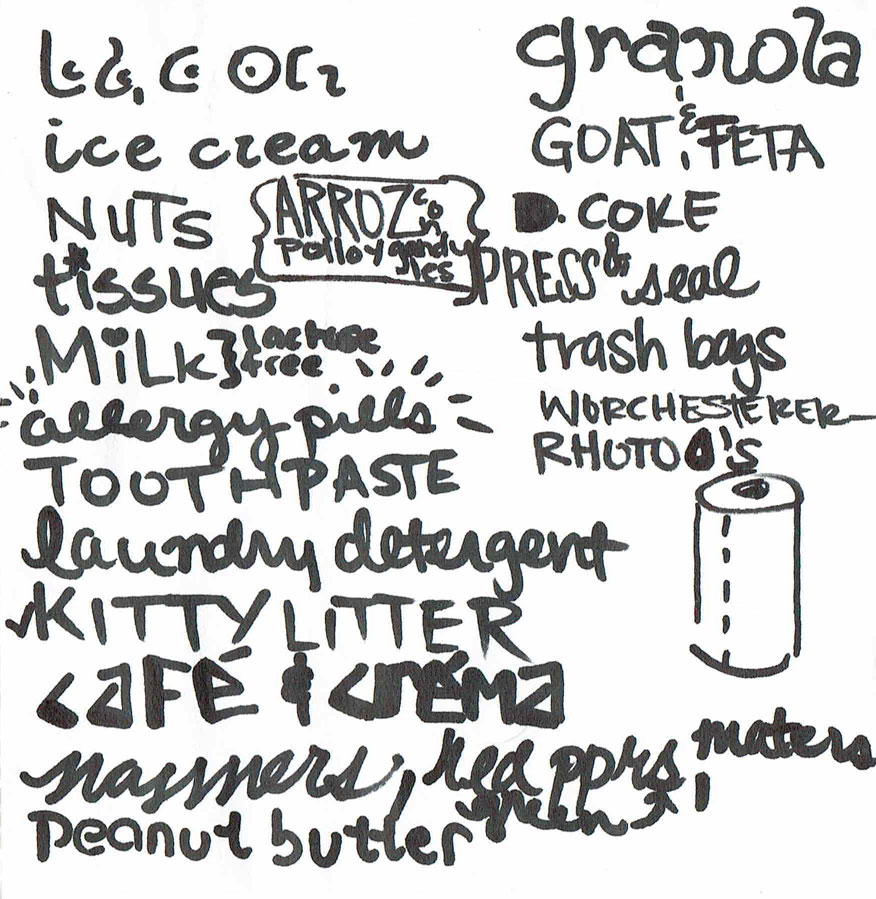 ice cream
NUTS
ARROZ con
pollo y gandules
tissues
MiLk } lactose free
allergy pills
TOOTHPASTE
laundry detergent
KITTY LITTER
CAFÉ & créma
nayners, red pprs, maters
green
peanut butter
granola
GOAT & FETA
D. COKE
PRESS & seal
trash bags
WORCHESTERER
RHOTO's